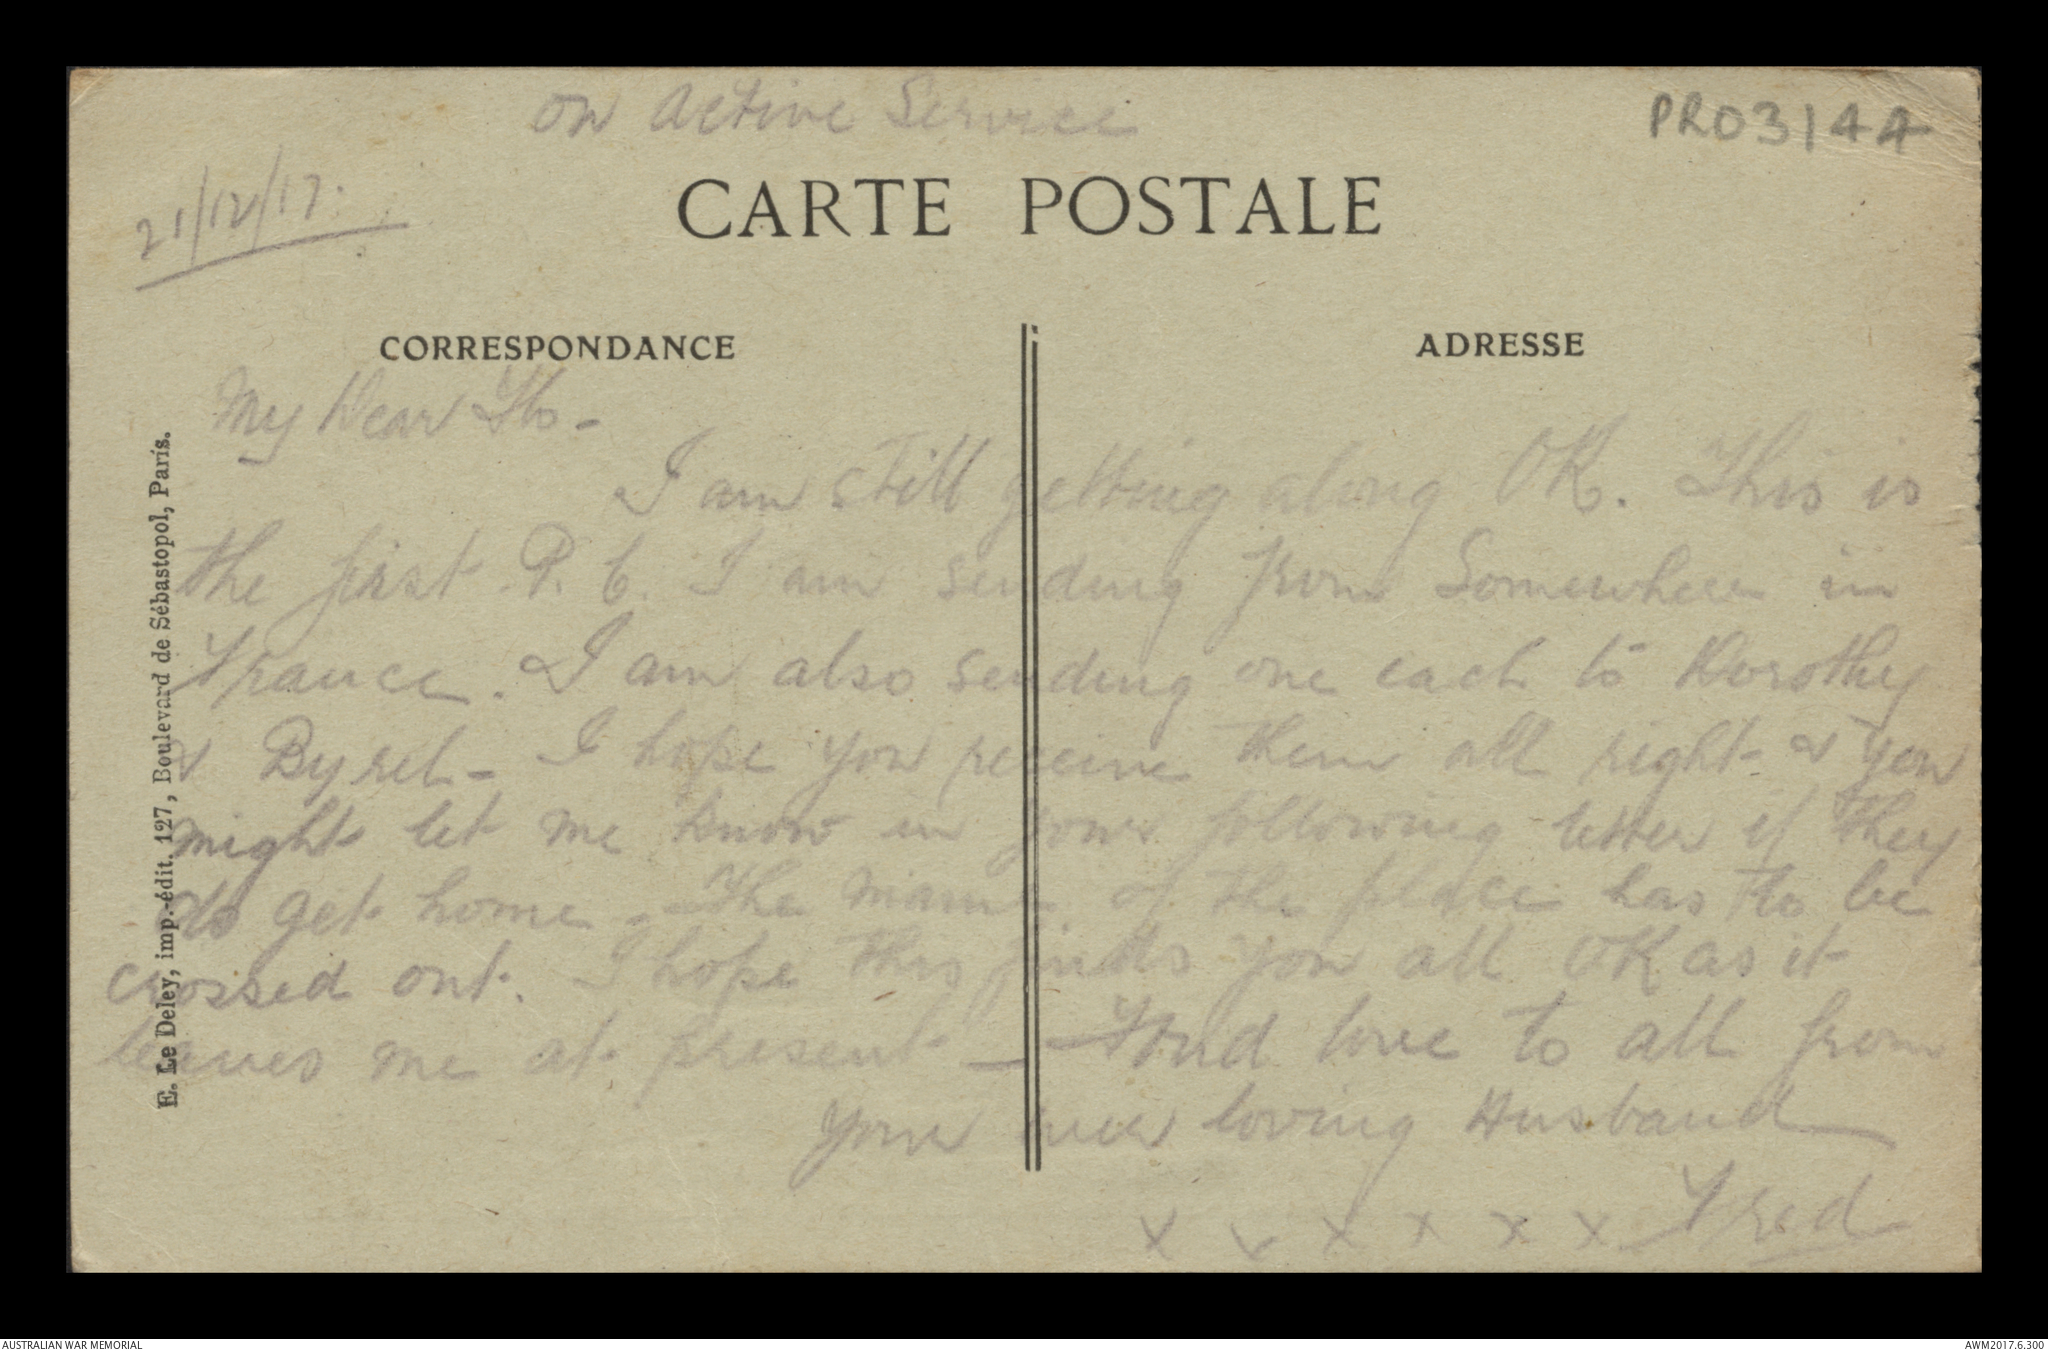 On Active Service
PR03144
21/12/17.
CARTE POSTALE
CORRESPONDANCE
ADRESSE
My Dear Flo -
I am still getting along OK. This is
the first P.C. I am sending from Somewhere in
France. I am also sending one each to Dorothy
& Byrel - I hope you receive them all right & you
might let me know in your following letter if they
do get home - The name of the place has to be
crossed out. I hope this finds you all OK as it
leaves me at present - Fond love to all from
Your ever loving Husband
x x x x x x Fred
E. Le Deley, imp.-édit. 127, Boulevard de Sébastopol, Paris.
AUSTRALIAN WAR MEMORIAL
AWM2017.6.300